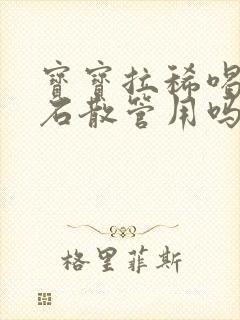 寶寶拉稀喝
石散管用吗
格里菲斯